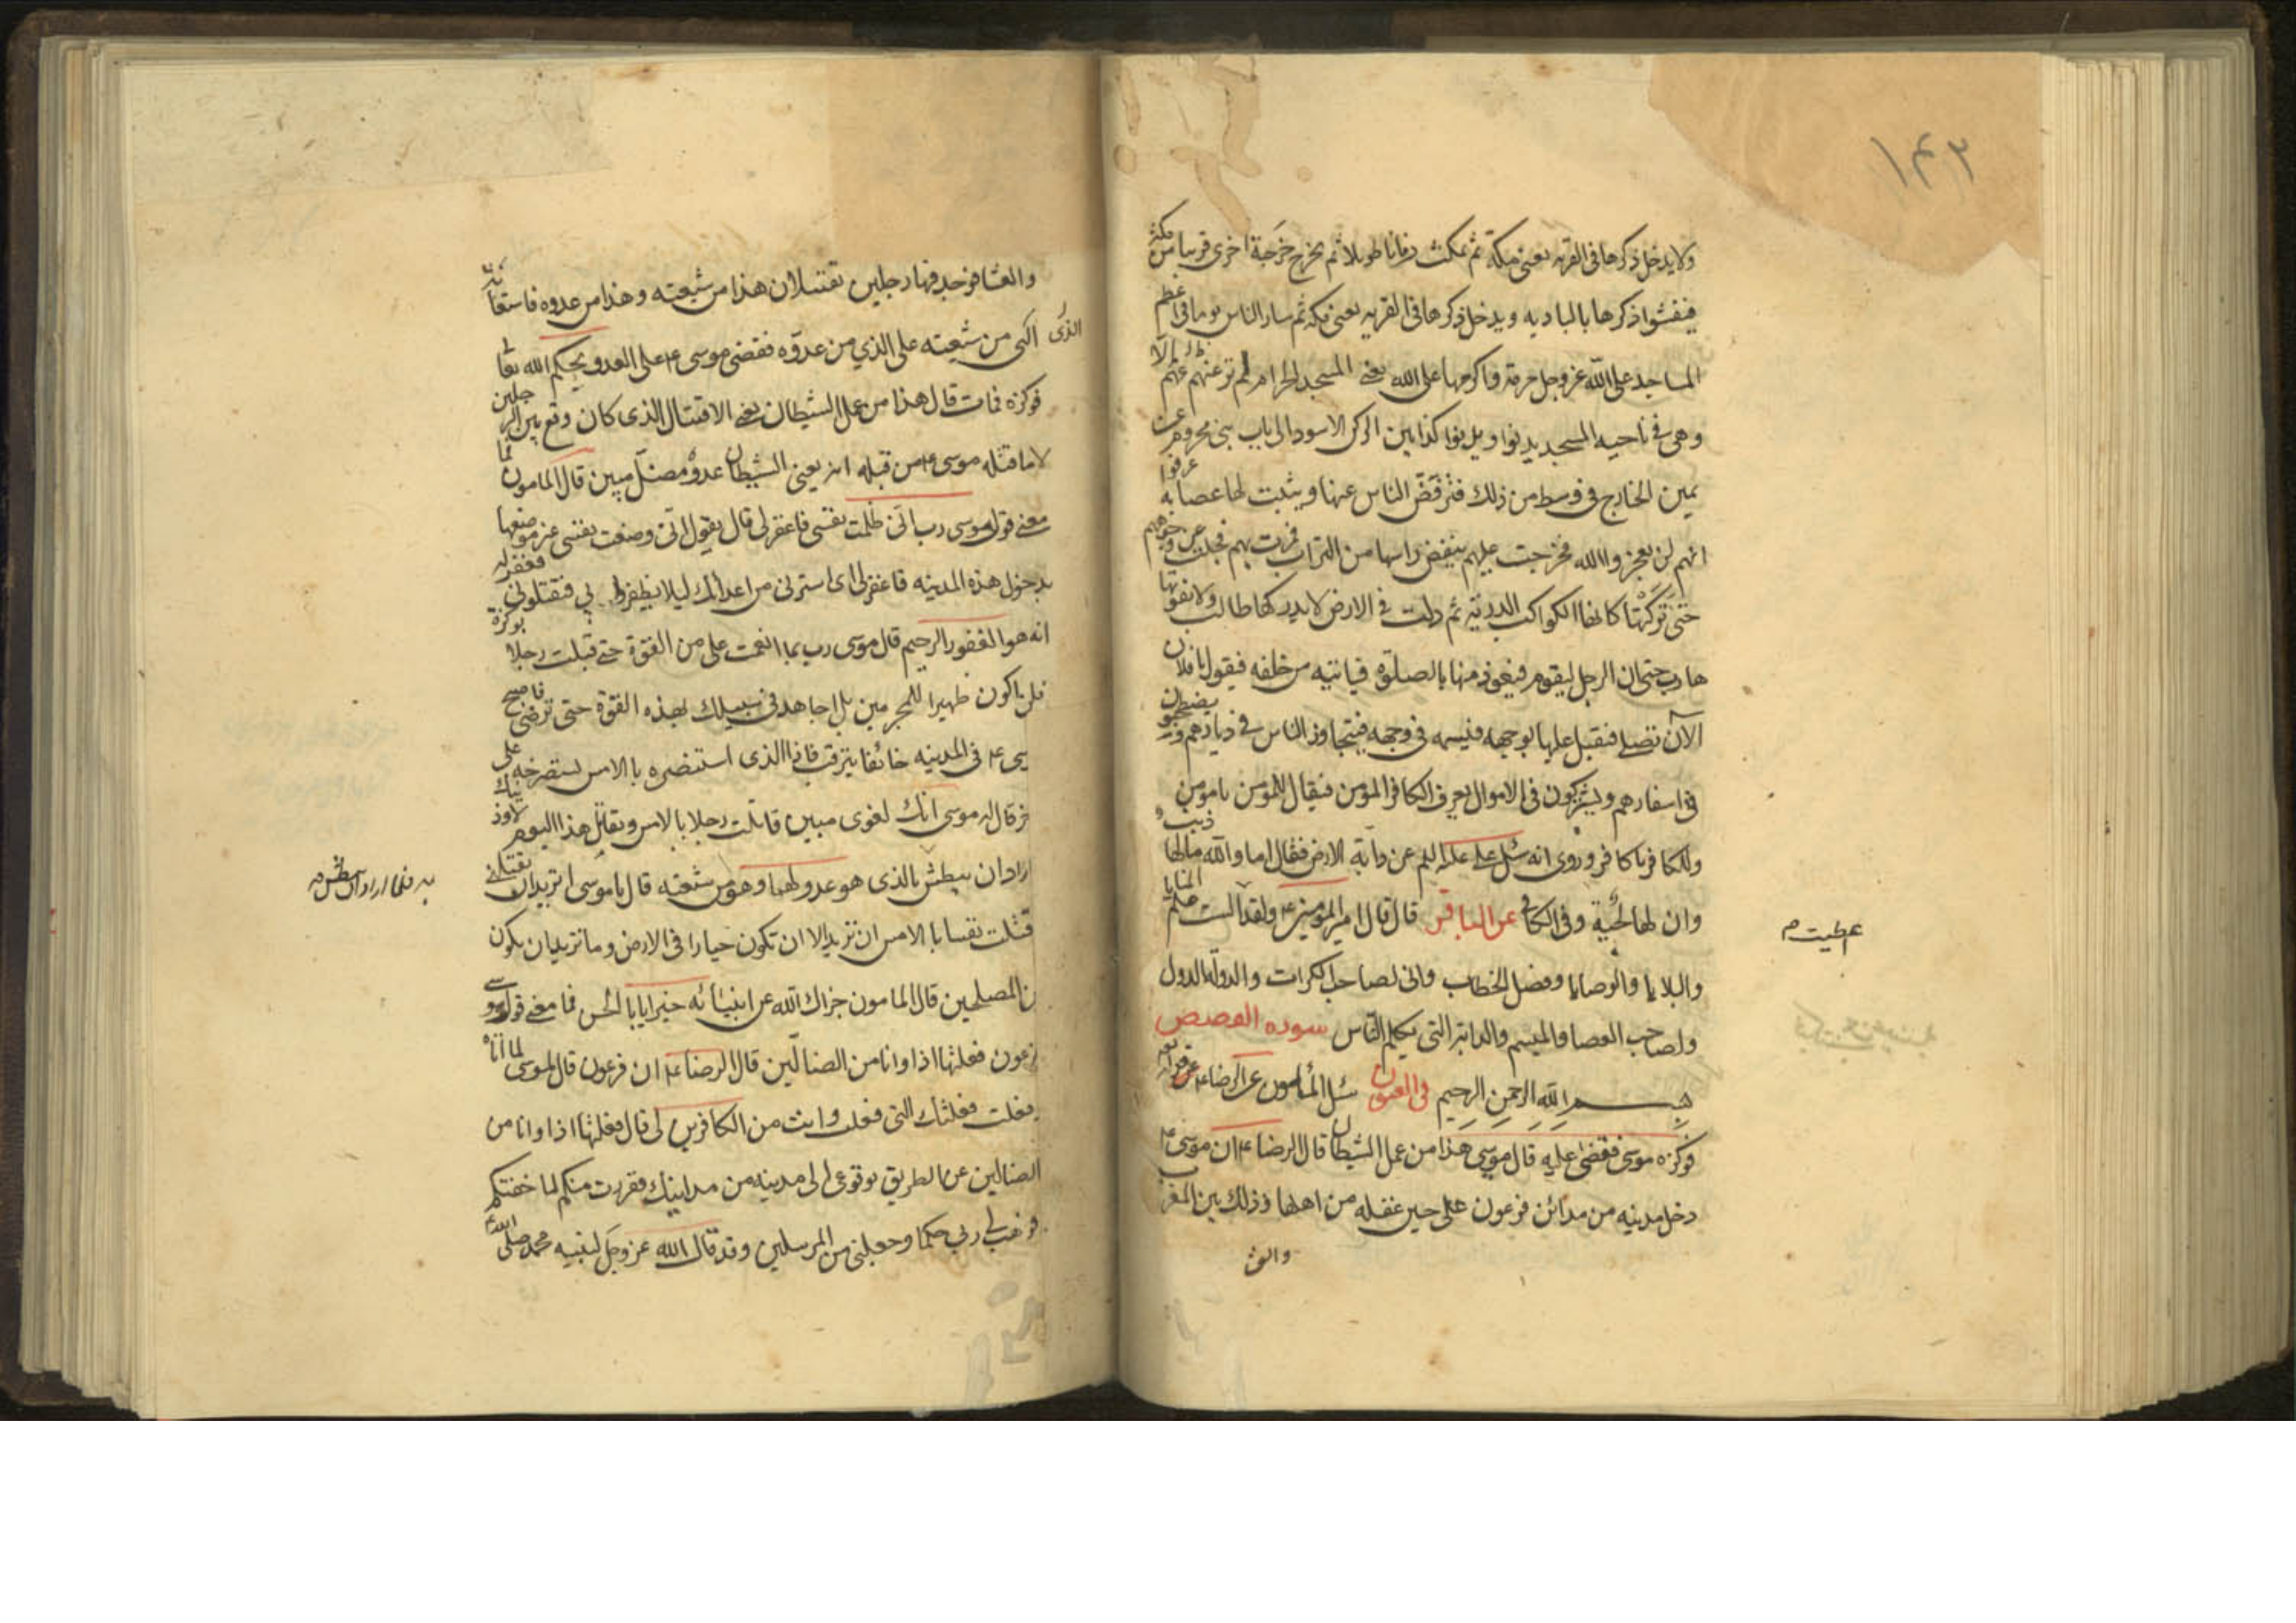 ۱۴۲
ولا يدخل ذكرها فى القريه يعنى مكة ثم تمكث زمانا طويلا ثم تخرج خرجة اخرى قريبا من مكة
فيفشوا ذكرها بالباديه ويدخل ذكرها فى القريه يعنى مكة ثم سار الناس يوما فى اعظم
المساجد على الله عز وجل حرمة واكرمها على الله يعنى المسجد الحرام لم ترعهم الا
وهى فى ناحيه المسجد يدنوا ويدنوا كذا بين الركن الاسود الى باب بنى مخزوم عن
يمين الخارج فى وسط من ذلك فترفض الناس عنها ويثبت لها عصابه عرفوا
انهم لن يعجزوا الله فخرجت عليهم ينفض راسها من التراب فمرت بهم فجلت عن وجوههم
حتى تركتها كانها الكواكب الدرية ثم ولت فى الارض لا يدركها طالب ولا يفوتها
هارب حتى ان الرجل ليقوم فيعوذ منها بالصلوة فياتيه من خلفه فيقول يا فلان
الآن تصلى فيقبل عليها بوجهه فتسمه فى وجهه فيتجاوز الناس فى ديارهم ويصطحبون
فى اسفارهم ويشتركون فى الاموال يعرف الكافر المؤمن فيقال للمؤمن يا مومن
وللكافر يا كافر وروى انه سئل على عليه السلم عن دابة الارض فقال اما والله مالها ذنب
وان لها لحية وفى الكافى عن الباقر قال قال امير المؤمنين ع ولقد الست علم المنايا
عطيت م
والبلايا والوصايا وفصل الخطاب وانى لصاحب الكرات والدولة الدول
ولصاحب العصا والميسم والدابة التى يكلم الناس سوره القصص
بسم الله الرحمن الرحيم فى العيون سئل المأمون عن الرضا ع عن قوله تع
فوكزه موسى فقضى عليه قال موسى هذا من عمل الشيطان قال الرضا ع ان موسى ع
دخل مدينه من مدائن فرعون على حين غفله من اهلها وذلك بين المغرب
والعش
والعشا فوجد فيها رجلين يقتتلان هذا من شيعته وهذا من عدوه فاستغاثه
الذى الى من شيعته على الذي من عدوه فقضى موسى ع على العدو بحكم الله تعا
فوكزه فمات قال هذا من عمل الشيطان يعنى الاقتتال الذى كان وقع بين الرجلين
لا ما فتله موسى ع من قبله انه يعنى الشيطان عدو مضل مبين قال المامون فما
معنى قول موسى رب انى ظلمت نفسى فاغفر لى قال يقول انى وضعت نفسى غير موضعها
بدخول هذه المدينه فاغفر لى اى استرنى من اعدائك ليلا يظفروا بي فيقتلونى فغفر له
انه هو الغفور الرحيم قال موسى رب بما انعمت على من القوة حتى قبلت رجلا بوكزة
فلن اكون ظهيرا للمجرمين بل اجاهد فى سبيلك بهذه القوة حتى ترضى فاصبح
سى ع فى المدينه خائفا يترقب فاذا الذى استنصره بالامس يستصرخه على
خر قال له موسى انك لغوى مبين قاتلت رجلا بالامس وتقاتل هذا اليوم لاوذينك
اراد ان يبطش بالذى هو عدو لهما وهو من شيعته قال يا موسى اتريد ان تقتلنى
به فلما اراد ان يبطش م
قتلت نفسا بالامس ان تريد الا ان تكون جبارا فى الارض وما تريد ان يكون
ن المصلحين قال المامون جزاك الله عن انبيائه خيرا يا با الحسن فما معنى قول موسى
لفرعون فعلتها اذا وانا من الضالين قال الرضا ع ان فرعون قال لموسى لما اتاه
وفعلت فعلتك التى فعلت وانت من الكافرين لى قال فعلتها اذا وانا من
الضالين عن الطريق بوقوعى الى مدينه من مداينك ففررت منكم لما خفتكم
فوهب لي ربي حكما وجعلنى من المرسلين وقد قال الله عز وجل لنبيه محمد صلى الله ع